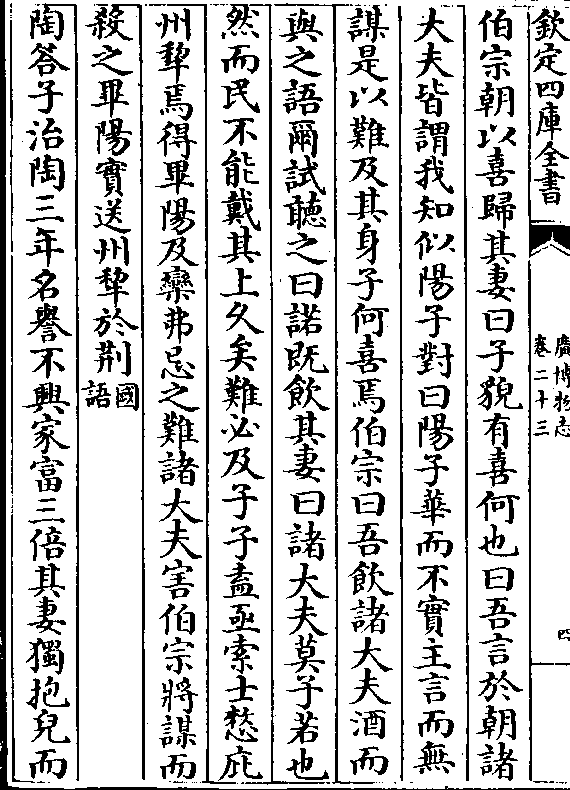 欽定四庫全書
廣博物志
卷二十三
四
伯宗朝以喜歸其妻曰子貌有喜何也曰吾言於朝諸
大夫皆謂我知似陽子對曰陽子華而不實主言而無
謀是以難及其身子何喜焉伯宗曰吾飲諸大夫酒而
與之語爾試聽之曰諾既飲其妻曰諸大夫莫子若也
然而民不能戴其上久矣難必及子子盍亟索士憖庇
州犂焉得畢陽及欒弗忌之難諸大夫害伯宗將謀而
殺之畢陽實送州犂於荆國語
陶答子治陶三年名譽不興家富三倍其妻獨抱兒而